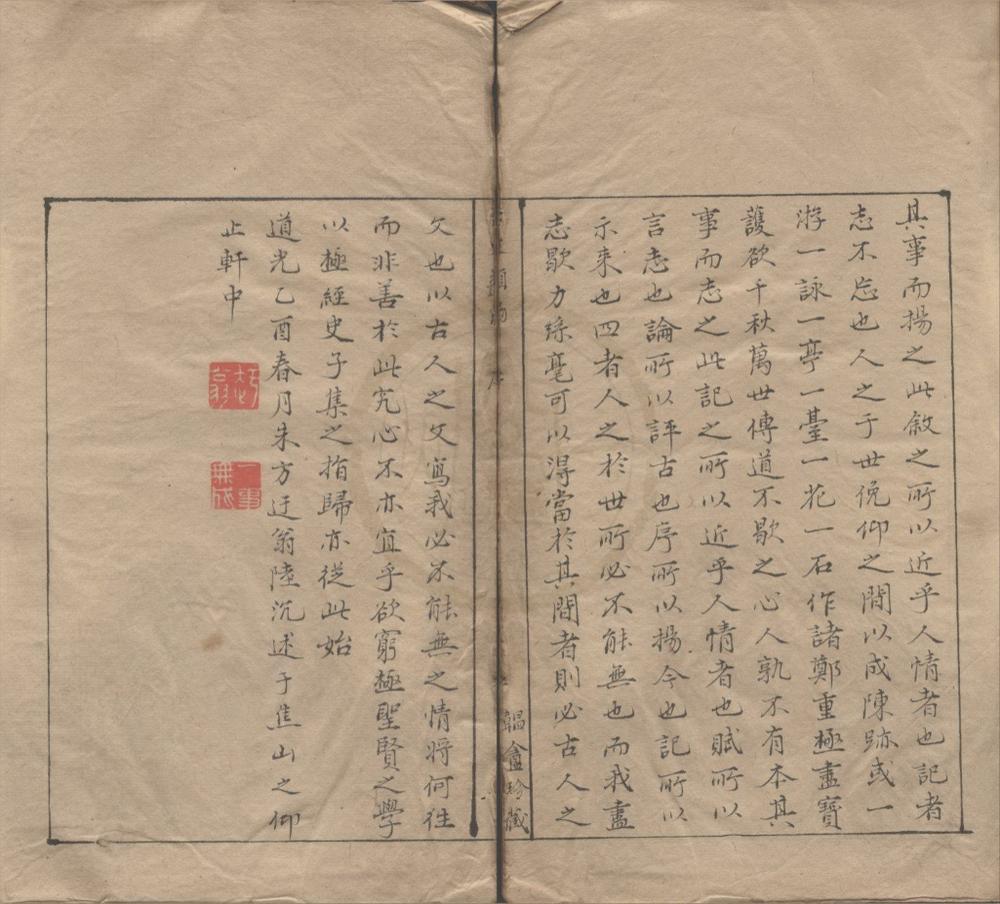 其事而揚之此敘之所以近乎人情者也記者
志不忘也人之于世俛仰之間以成陳跡或一
游一詠一亭一臺一花一石作諸鄭重極盡寶
護欲千秋萬世傳道不歇之心人孰不有本其
事而志之此記之所以近乎人情者也賦所以
言志也論所以評古也序所以揚今也記所以
示来也四者人之於世所必不能無也而我盡
志歇力綠毫可以淂當於其間者則必古人之
文也以古人之文寫我必不能無之情將何徃
而非善於此究心不亦宜乎欲窮極聖賢之學
以極經史子集之指歸亦從此始
道光乙酉春月朱方迂翁陸沉述于焦山之仰
止軒中
序
韞盦珍藏
一事無成